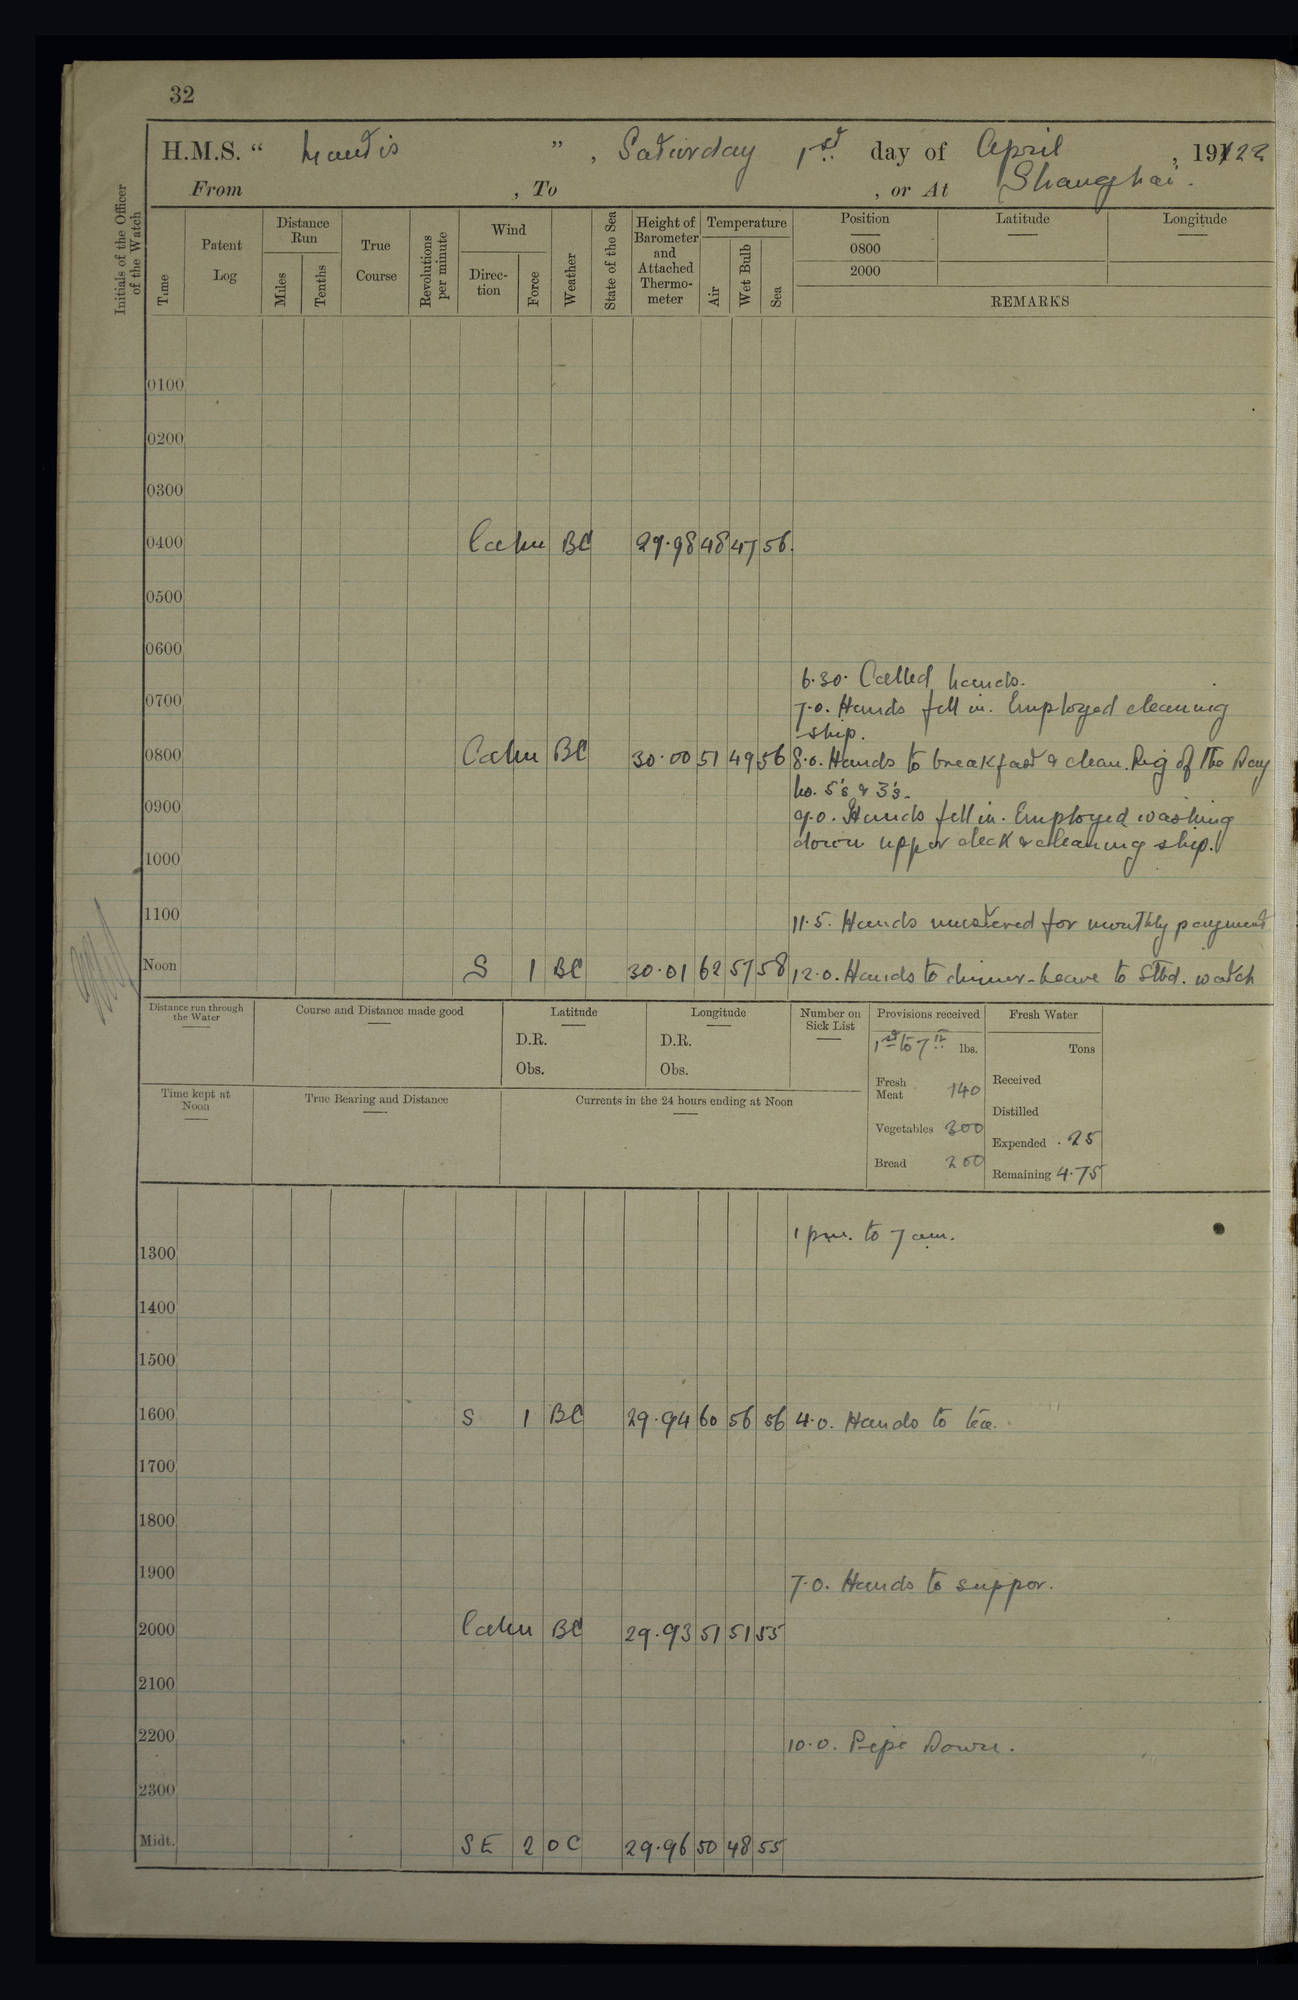 32
H.M.S. “ Mantis ” , Saturday 1st day of April , 1922
From , To , or At Shanghai.
Initials of the Officer of the Watch
Time
Patent Log
Distance Run
Miles
Tenths
True Course
Revolutions per minute
Wind
Direction
Force
Weather
State of the Sea
Height of Barometer and Attached Thermometer
Temperature
Air
Wet Bulb
Sea
Position Latitude Longitude
0800
2000
REMARKS
0100
0200
0300
0400 Calm BC 29.98 48 47 56.
0500
0600
6.30. Called hands.
0700 7.0. Hands fell in. Employed cleaning
ship.
0800 Calm BC 30.00 51 49 56 8.0. Hands to breakfast & clean. Rig of the Day
No. 5's & 3's.
0900 9.0. Hands fell in. Employed washing
down upper deck & cleaning ship.
1000
1100 11.5. Hands mustered for monthly payment
Noon S 1 BC 30.01 62 57 58 12.0. Hands to dinner - Leave to Stbd. watch
Distance run through the Water
Course and Distance made good
Latitude
D.R.
Obs.
Longitude
D.R.
Obs.
Number on Sick List
Provisions received
1st to 7th lbs.
Fresh Meat 140
Vegetables 300
Bread 200
Fresh Water
Tons
Received
Distilled
Expended .25
Remaining 4.75
Time kept at Noon
True Bearing and Distance
Currents in the 24 hours ending at Noon
1 pm. to 7 am.
1300
1400
1500
1600 S 1 BC 29.94 60 56 56 4.0. Hands to tea.
1700
1800
1900 7.0. Hands to suppor.
2000 Calm BC 29.93 51 51 55
2100
2200 10.0. Pipe Down.
2300
Midt. SE 2 OC 29.96 50 48 55